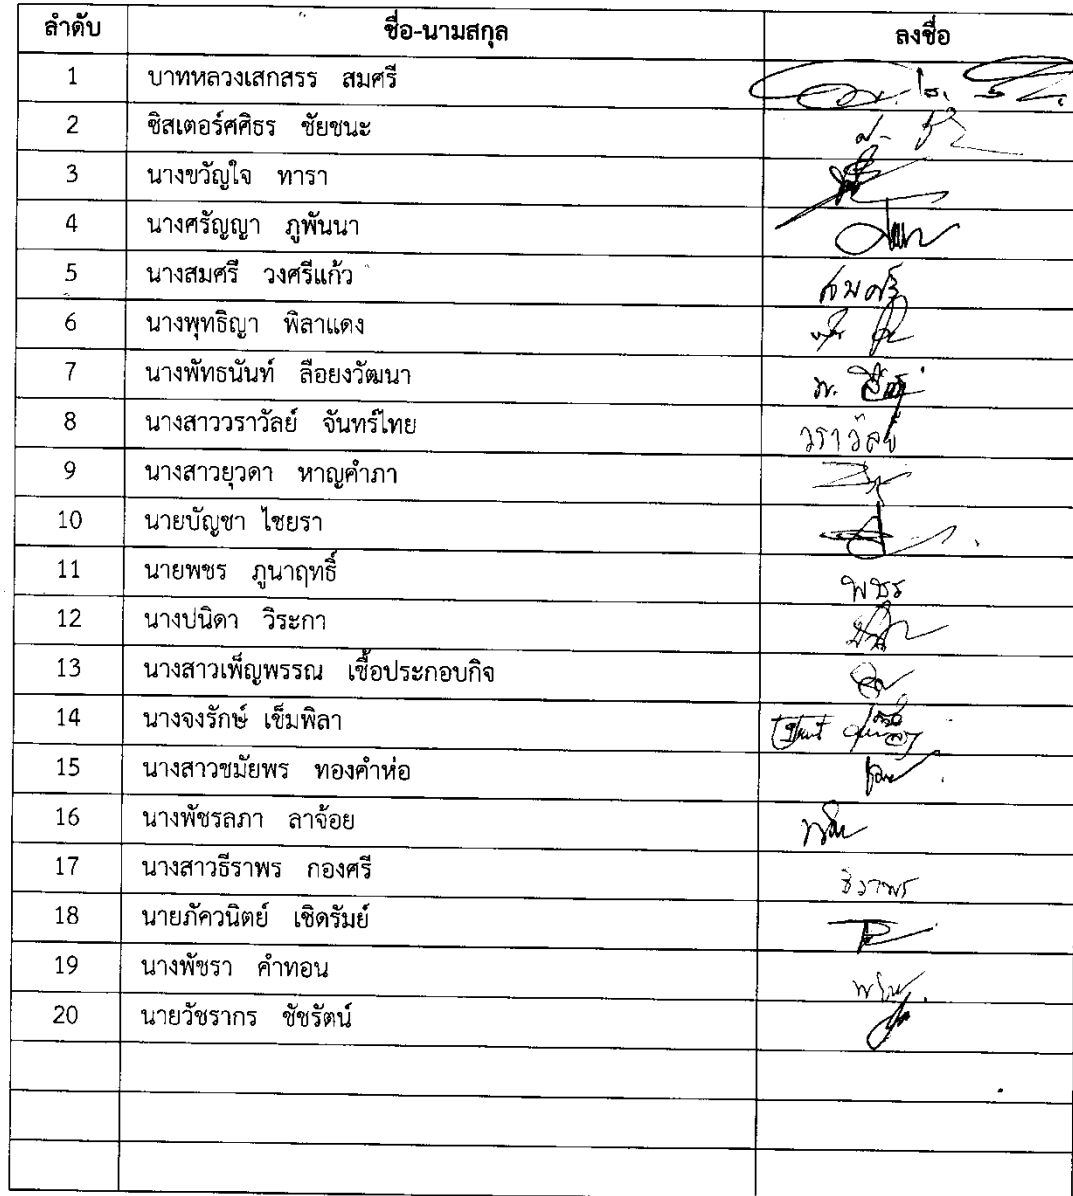 ลำดับ ชื่อ-นามสกุล ลงชื่อ
1 บาทหลวงเสกสรร สมศรี
2 ซิสเตอร์ศศิธร ชัยชนะ
3 นางขวัญใจ ทารา
4 นางศรัญญา ภูพันนา
5 นางสมศรี วงศรีแก้ว สมศรี
6 นางพุทธิญา พิลาแดง
7 นางพัทธนันท์ ลือยงวัฒนา
8 นางสาววราวัลย์ จันทร์ไทย วราวัลย์
9 นางสาวยุวดา หาญคำภา
10 นายบัญชา ไชยรา
11 นายพชร ภูนาฤทธิ์ พชร
12 นางปนิดา วิระกา
13 นางสาวเพ็ญพรรณ เชื้อประกอบกิจ
14 นางจงรักษ์ เข็มพิลา
15 นางสาวชมัยพร ทองคำห่อ
16 นางพัชรลภา ลาจ้อย
17 นางสาวธีราพร กองศรี ธีราพร
18 นายภัควนิตย์ เชิดรัมย์
19 นางพัชรา คำทอน
20 นายวัชรากร ชัชรัตน์